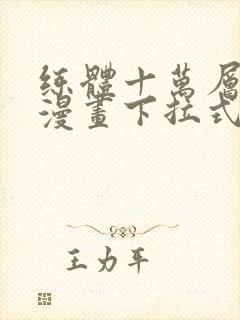 練體十萬層
漫畫下拉式
王力平